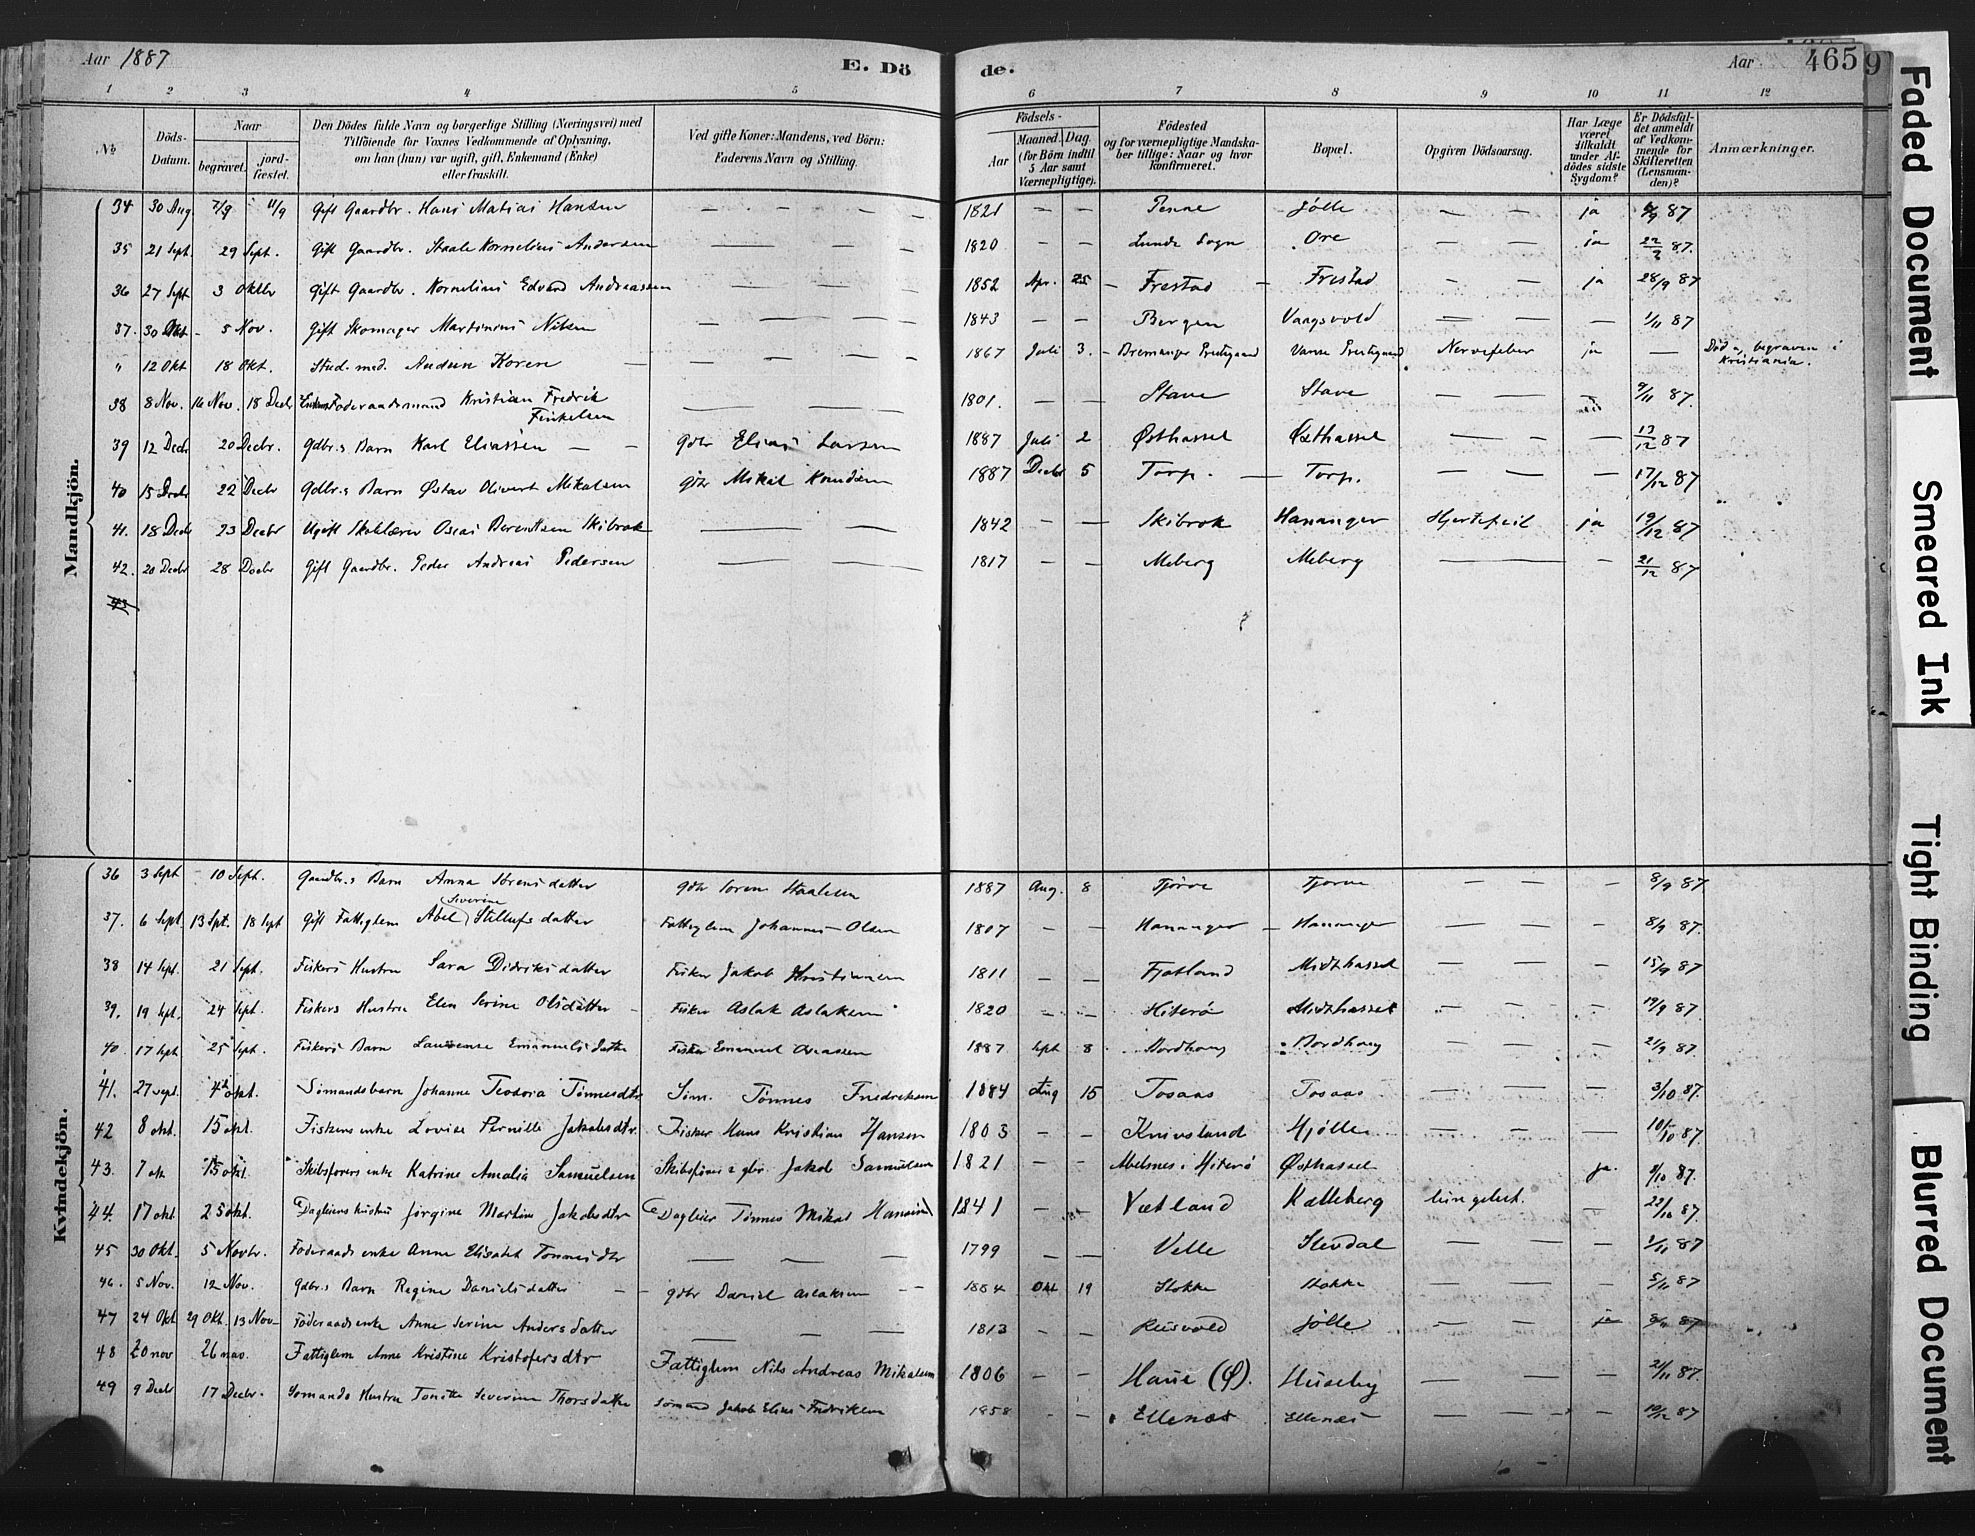 Aar 1887
E. Dö
de.
Aar
465
9
1 2 3 4 5 6 7 8 9 10 11 12
No.
Döds-Datum.
Naar
begravet.
jord-fæstet.
Den Dödes fulde Navn og borgerlige Stilling (Næringsvei) med
Tilföiende for Voxnes Vedkommende af Oplysning,
om han (hun) var ugift, gift, Enkemand (Enke)
eller fraskilt.
Ved gifte Koner: Mandens, ved Börn:
Faderens Navn og Stilling.
Födsels-
Aar
Maaned. Dag.
(for Börn indtil
5 Aar samt
Værnepligtige).
Födested
og for værnepligtige Mandska-
ber tillige: Naar og hvor
konfirmeret.
Bopæl.
Opgiven Dödsaarsag.
Har Læge
været
tilkaldt
under Af-
dödes sidste
Sygdom?
Er Dödsfal-
det anmeldt
af Vedkom-
mende for
Skifteretten
(Lensman-
den)?
Anmærkninger.
Mandkjön.
34 30 Aug 7/9 11/9 Gift Gaardbr. Hans Matias Hansen — — — — 1821 — — Penne Jølle — — ja 6/9 87
35 21 Sept. 29 Sept. Gift Gaardbr. Staale Kornelius Andersen — — — 1820 — — Lunde Sogn Ore — — ja 22/9 87.
36 27 Sept 3 Oktbr Gift Gaardbr. Kornelius Edvard Andreassen — — — 1852 Apr. 25 — Frestad — Frestad — — ja 28/9 87
37. 30 Okt - 5 Nov. Gift Skomager Martinius Nilsen — — — 1843 — — Bergen Vaagsvold — — — 1/11 87
" 12 Okt 18 Okt. Stud. med. Audun Koren — — 1867 Juli 3. - Bremanger Prestegaard Vanse Prestegaard Nervefeber ja — Död og begraven i
Kristiania.
38 8 Nov. 14 Nov. 18 Decbr Foderaadsmand Kristian Fredrik
Finkelsen — — — 1801. — — Stave Stave — — — 9/11 87.
39 12 Decbr 20 Decbr. Gdbr.s Barn Karl Eliassen — — gdbr Elias Larsen 1887 Juli 2 Østhassel Østhassel — — — 13/12 87
40 15 Decbr 22 Decbr Gdbr.s Barn Østav Olivert Mikalsen gdbr Mikal Knudsen 1887 Decbr 5 Torp. — Torp. — — — 17/12 87
41. 18 Decbr 23 Decbr Ugift Skolelærer Oseas Berentsen Skibrok — — 1842 — — Skibrok Hananger Hjertefeil ja 19/12 87
42. 20 Decbr 28 Decbr Gift Gaardbr. Peder Andreas Pedersen — — 1817 — — Meberg Meberg — — 21/12 87
43
Kvindekjön.
36 3 Sept 10 Sept. Gaardbr.s Barn Anna Sørensdatter gdbr Søren Staalesen 1887 Aug. 8 Tjørve Tjørve — — — 8/9 87
Severine
37. 6 Sept. 13 Spt. 18 Sept Gift Fattiglem Abel Stillufsdatter Fattiglem Johannes Olsen 1807 — — Hananger — Hananger — — — 8/9 87.
38 14 Sept. 21 Sept. Fiskers Hustru Sara Didriksdatter Fisker Jakob Kristiansen 1811 — — Fjotland Midthassel — — — 15/9 87
39. 19 Sept. 24 Sept. Fiskers Hustru Elen Serine Olsdatter - Fisker Aslak Aslaksen 1820 — — Hiterø Midthassel — — — 19/9 87
40. 17 Sept 25 Sept. Fiskers Barn Laurense Emanuelsdatter Fisker Emanuel Oseassen 1887 Sept 8 Nordhoug Nordhoug — — — 21/9 87.
41. 27 sept. 4 okt. Sømandsbarn Johanne Teodora Tønnesdtr Søm. Tønnes Fredriksen 1884 Aug 15 Tosaas Tosaas — — — 3/10 87.
42 8 okt. 15 okt. Fiskers enke Lovise Pernille Jakobsdtr. Fisker Hans Kristian Hansen 1803 — — Knivsland Hjølle — — — 10/10 87.
43. 7 okt 15 okt. Skibsførers enke Katrine Amalia Samuelsen Skibsfører & gbr. Jakob Samuelsen 1821 — — Abelsnes i Hiterø Østhassel ja. 9/10 87.
44. 17 okt 25 okt. Dagleiers hustru Jørgine Martine Jakobsdtr Dagleier Tønnes Mikal Hansen 1841 — — Vætland Kalleberg lungebet. — 22/10 87.
45 30 Okt. 5 Novbr. Foderaads enke Anne Elisabet Tønnesdtr — — — 1799 — — Velle Stevdal — — — 1/11 87
46. 5 Nov. 12 Nov. Gdbr.s Barn Regine Danielsdatter — — gdbr Daniel Aslaksen — — 1884 Okt 19 Stokke Stokke — — — 5/11 87
47 24 Okt 29 Okt. 13 Nov Föderaadsenke Anne Serine Andersdatter — — — 1813 — — Jølle — — ja 8/11 87
48 20 nov 26 nov. Fattiglem Anne Kristine Kristofersdtr Fattiglem Nils Andreas Mikalsen 1806 — — Haue (Ø). Huseby — — — 21/11 87.
49 9 Decbr 17 Decbr. Sømands Hustru Tonette Severine Thorsdatter Sømand Jakob Elias Fredriksen 1858 — — Ellenæs Ellenæs — — — 10/12 87
Faded Document
Smeared Ink
Tight Binding
Blurred Document